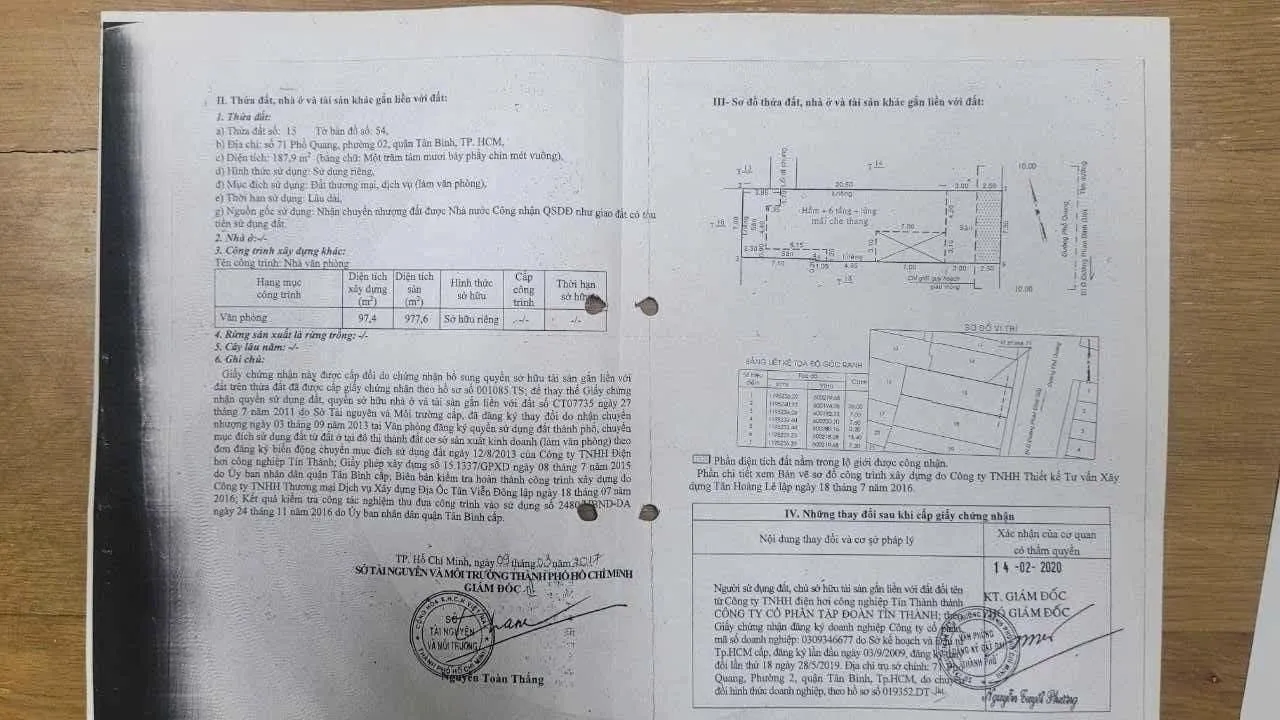 II. Thửa đất, nhà ở và tài sản khác gắn liền với đất:
1. Thửa đất:
a) Thửa đất số: 15 Tờ bản đồ số: 54,
b) Địa chỉ: số 71 Phổ Quang, phường 02, quận Tân Bình, TP. HCM,
c) Diện tích: 187,9 m² (bằng chữ: Một trăm tám mươi bảy phẩy chín mét vuông),
d) Hình thức sử dụng: Sử dụng riêng,
đ) Mục đích sử dụng: Đất thương mại, dịch vụ (làm văn phòng),
e) Thời hạn sử dụng: Lâu dài,
g) Nguồn gốc sử dụng: Nhận chuyển nhượng đất được Nhà nước Công nhận QSDĐ như giao đất có thu
tiền sử dụng đất.
2. Nhà ở:-/-
3. Công trình xây dựng khác:
Tên công trình: Nhà văn phòng
Hạng mục công trình
Diện tích xây dựng (m²)
Diện tích sàn (m²)
Hình thức sở hữu
Cấp công trình
Thời hạn sở hữu
Văn phòng 97,4 977,6 Sở hữu riêng -/- -/-
4. Rừng sản xuất là rừng trồng: -/-
5. Cây lâu năm: -/-
6. Ghi chú:
Giấy chứng nhận này được cấp đổi do chứng nhận bổ sung quyền sở hữu tài sản gắn liền với
đất trên thửa đất đã được cấp giấy chứng nhận theo hồ sơ số 001085.TS; để thay thế Giấy chứng
nhận quyền sử dụng đất, quyền sở hữu nhà ở và tài sản gắn liền với đất số CT07735 ngày 27
tháng 7 năm 2011 do Sở Tài nguyên và Môi trường cấp, đã đăng ký thay đổi do nhận chuyển
nhượng ngày 03 tháng 09 năm 2013 tại Văn phòng đăng ký quyền sử dụng đất thành phố, chuyển
mục đích sử dụng đất từ đất ở tại đô thị thành đất cơ sở sản xuất kinh doanh (làm văn phòng) theo
đơn đăng ký biến động chuyển mục đích sử dụng đất ngày 12/8/2013 của Công ty TNHH Điện
hơi công nghiệp Tín Thành; Giấy phép xây dựng số 15.1337/GPXD ngày 08 tháng 7 năm 2015
do Ủy ban nhân dân quận Tân Bình cấp; Biên bản kiểm tra hoàn thành công trình xây dựng do
Công ty TNHH Thương mại Dịch vụ Xây dựng Địa Ốc Tân Viễn Đông lập ngày 18 tháng 07 năm
2016; Kết quả kiểm tra công tác nghiệm thu đưa công trình vào sử dụng số 2480/UBND-DA
ngày 24 tháng 11 năm 2016 do Ủy ban nhân dân quận Tân Bình cấp.
TP. Hồ Chí Minh, ngày 09 tháng 03 năm 2017
SỞ TÀI NGUYÊN VÀ MÔI TRƯỜNG THÀNH PHỐ HỒ CHÍ MINH
GIÁM ĐỐC
SỞ
TÀI NGUYÊN
VÀ MÔI TRƯỜNG
Nguyễn Toàn Thắng
III- Sơ đồ thửa đất, nhà ở và tài sản khác gắn liền với đất:
Lối đi chung
20.50
3.00
2.50
10.00
Hầm + 6 tầng + lửng
mái che thang
Sân
Đường Phổ Quang
7.00
7.10
4.95
7.00
3.00
2.50
10.00
SƠ ĐỒ VỊ TRÍ
Đường Phổ Quang
BẢNG LIỆT KÊ TỌA ĐỘ GÓC RANH
Phần diện tích đất nằm trong lộ giới được công nhận.
Phần chi tiết xem Bản vẽ sơ đồ công trình xây dựng do Công ty TNHH Thiết kế Tư vấn Xây
dựng Tân Hoàng Lê lập ngày 18 tháng 7 năm 2016.
IV. Những thay đổi sau khi cấp giấy chứng nhận
Nội dung thay đổi và cơ sở pháp lý
Xác nhận của cơ quan
có thẩm quyền
14-02-2020
Người sử dụng đất, chủ sở hữu tài sản gắn liền với đất đổi tên
từ Công ty TNHH điện hơi công nghiệp Tín Thành thành
CÔNG TY CỔ PHẦN TẬP ĐOÀN TÍN THÀNH; theo
Giấy chứng nhận đăng ký doanh nghiệp Công ty cổ phần,
mã số doanh nghiệp: 0309346677 do Sở kế hoạch và Đầu tư
Tp.HCM cấp, đăng ký lần đầu ngày 03/9/2009, đăng ký thay
đổi lần thứ 18 ngày 28/5/2019. Địa chỉ trụ sở chính: 71
Quang, Phường 2, quận Tân Bình, Tp.HCM, do chuyển
đổi hình thức doanh nghiệp, theo hồ sơ số 019352.DT
KT. GIÁM ĐỐC
PHÓ GIÁM ĐỐC
VĂN PHÒNG
ĐĂNG KÝ ĐẤT ĐAI
THÀNH PHỐ
Nguyễn Tuyết Phương